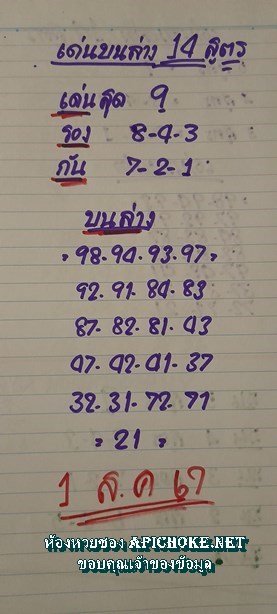 เด่นบนล่าง 14 สูตร
เด่นสุด 9
รอง 8-4-3
กัน 7-2-1
บนล่าง
= 98-94-93-97 =
92-91-84-83
87-82-81-43
47-42-41-37
32-31-72-71
= 21 =
1 ส.ค 67
ห้องหวยซอง APICHOKE.NET
ขอบคุณเจ้าของข้อมูล